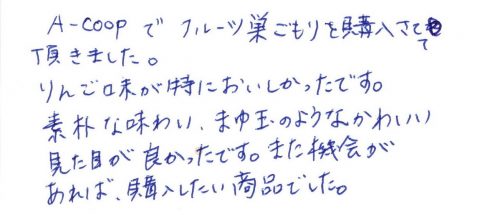 A-COOPで フルーツ巣ごもりを購入させて
頂きました。
りんご味が特においしかったです。
素朴な味わい、まゆ玉のようなかわいい
見た目が良かったです。また機会が
あれば、購入したい商品でした。